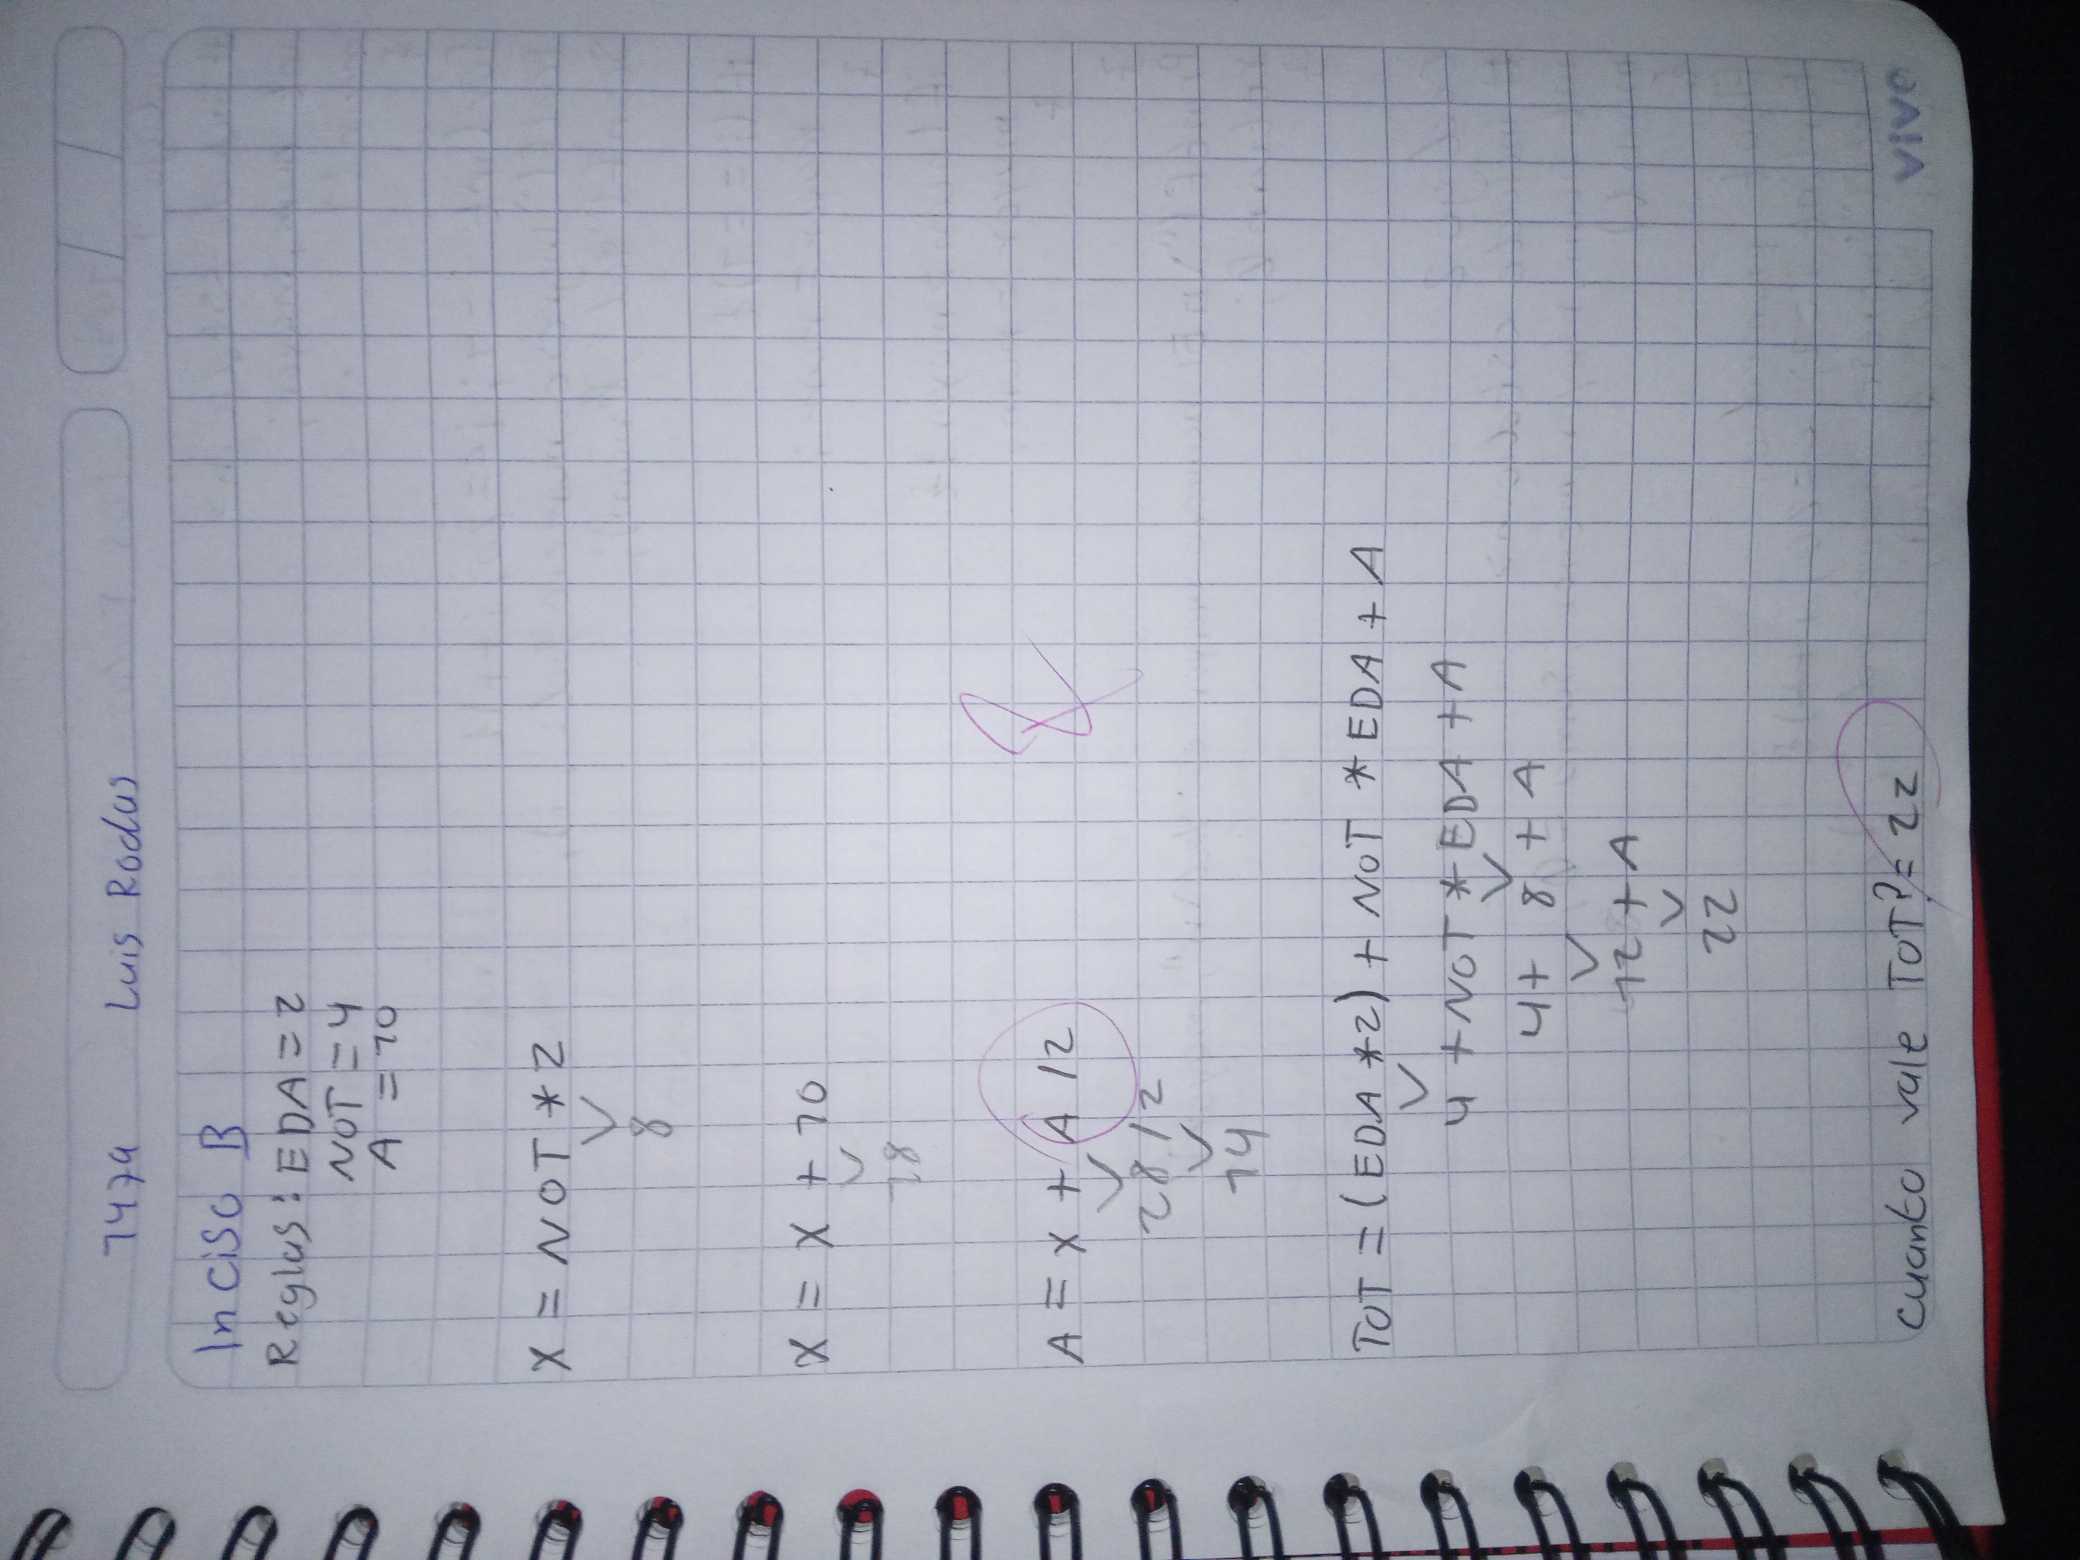 1474 Luis Rodas
Inciso B
Reglas: EDA = 2
NOT = 4
A = 10
X = NOT * 2
8
X = X + 10
18
A = X + A / 2
28 / 2
14
TOT = (EDA * 2) + NOT * EDA + A
4 + NOT * EDA + A
4 + 8 + A
12 + A
22
Cuanto vale TOT? = 22
VIVO